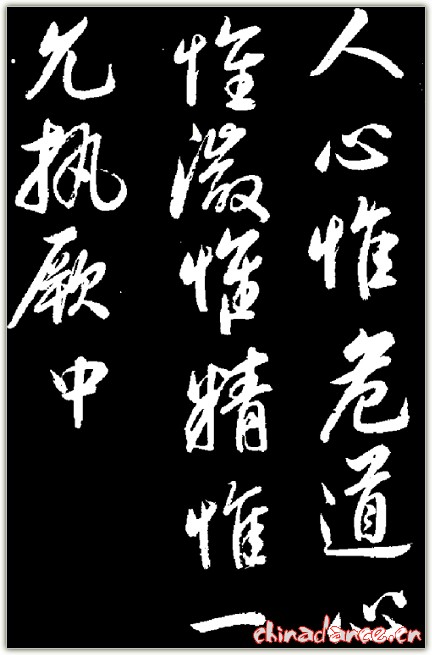 人心惟危道心
惟微惟精惟一
允执厥中
chinadance.cn